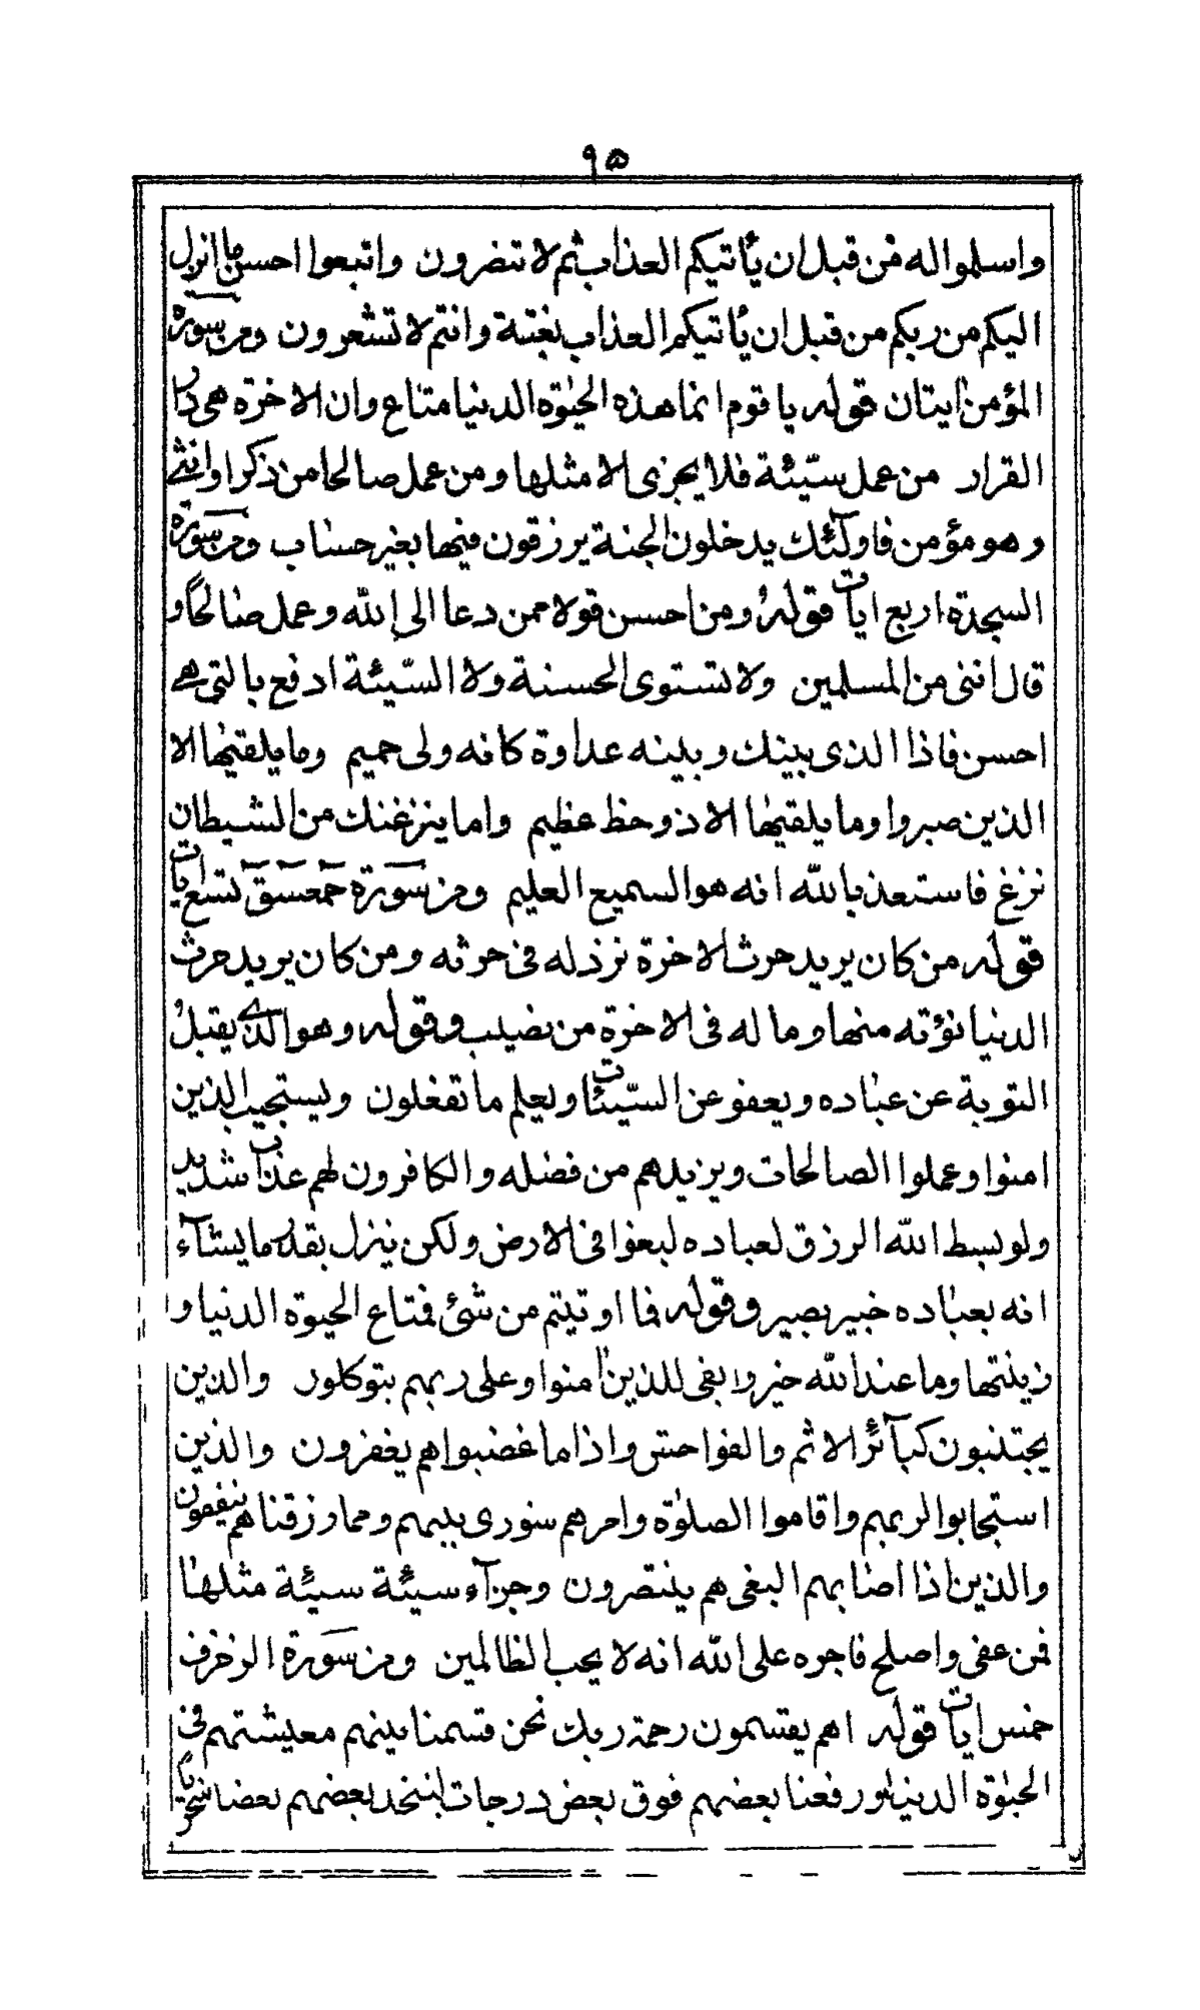 ٩٥
واسلموا له من قبل ان يأتيكم العذاب ثم لا تنصرون واتبعوا احسن ما انزل
اليكم من ربكم من قبل ان يأتيكم العذاب بغتة وانتم لا تشعرون ومن سورة
المؤمن ايتان قوله يا قوم انما هذه الحيوة الدنيا متاع وان الاخرة هى دار
القرار من عمل سيّئة فلا يجزى الا مثلها ومن عمل صالحا من ذكر او انثى
وهو مؤمن فاولٓئك يدخلون الجنة يرزقون فيها بغير حساب ومن سورة
السجدة اربع ايات قوله ومن احسن قولا ممن دعا الى الله وعمل صالحًا و
قال اننى من المسلمين ولا تستوى الحسنة ولا السّيئة ادفع بالتى هى
احسن فاذا الذى بينك وبينه عداوة كانه ولى حميم وما يلقيها الا
الذين صبروا وما يلقيها الا ذو حظ عظيم واما ينزغنك من الشيطان
نزغ فاستعذ بالله انه هو السميع العليم ومن سورة حمعسق تسع ايات
قوله من كان يريد حرث الاخرة نزد له فى حرثه ومن كان يريد حرث
الدنيا نؤته منها وما له فى الاخرة من نصيب وقوله وهو الذى يقبل
التوبة عن عباده ويعفو عن السّيئات ويعلم ما تفعلون ويستجيب الذين
امنوا وعملوا الصالحات ويزيدهم من فضله والكافرون لهم عذاب شديد
ولو بسط الله الرزق لعباده لبغوا فى الارض ولكن ينزل بقدر ما يشآء
انه بعباده خبير بصير وقوله فما اوتيتم من شئ فمتاع الحيوة الدنيا و
زينتها وما عند الله خير وابقى للذين امنوا وعلى ربهم يتوكلون والذين
يجتنبون كبآئر الاثم والفواحش واذا ما غضبوا هم يغفرون والذين
استجابوا لربهم واقاموا الصلوة وامرهم شورى بينهم ومما رزقناهم ينفقون
والذين اذا اصابهم البغى هم ينتصرون وجزآء سيئة سيئة مثلها
فمن عفى واصلح فاجره على الله انه لا يحب الظالمين ومن سورة الزخرف
خمس ايات قوله اهم يقسمون رحمة ربك نحن قسمنا بينهم معيشتهم فى
الحيوة الدنيا ورفعنا بعضهم فوق بعض درجات ليتخذ بعضهم بعضا سخريا